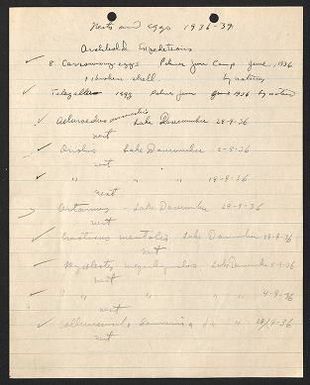 Nests and eggs 1936-39
Archbold Expeditions
✓ 8 Cassowary eggs Palmer Junc Camp June 1936
1 broken shell by natives
✓ Talegallus 1 egg Palmer Junc June 1936 by natives
✓ Ailuroedus Lake Daviumbu 28-9-36
nest
✓ Oriolus Lake Daviumbu 2-9-36
nest
✓ " " " 19-9-36
nest
Artamus Lake Daviumbu 29-9-36
nest
✓ mentalis Lake Daviumbu -9-36
nest
✓ Lake Daviumbu -9-36
nest
✓ " " " 4-9-36
nest
✓ " " 9-36
nest